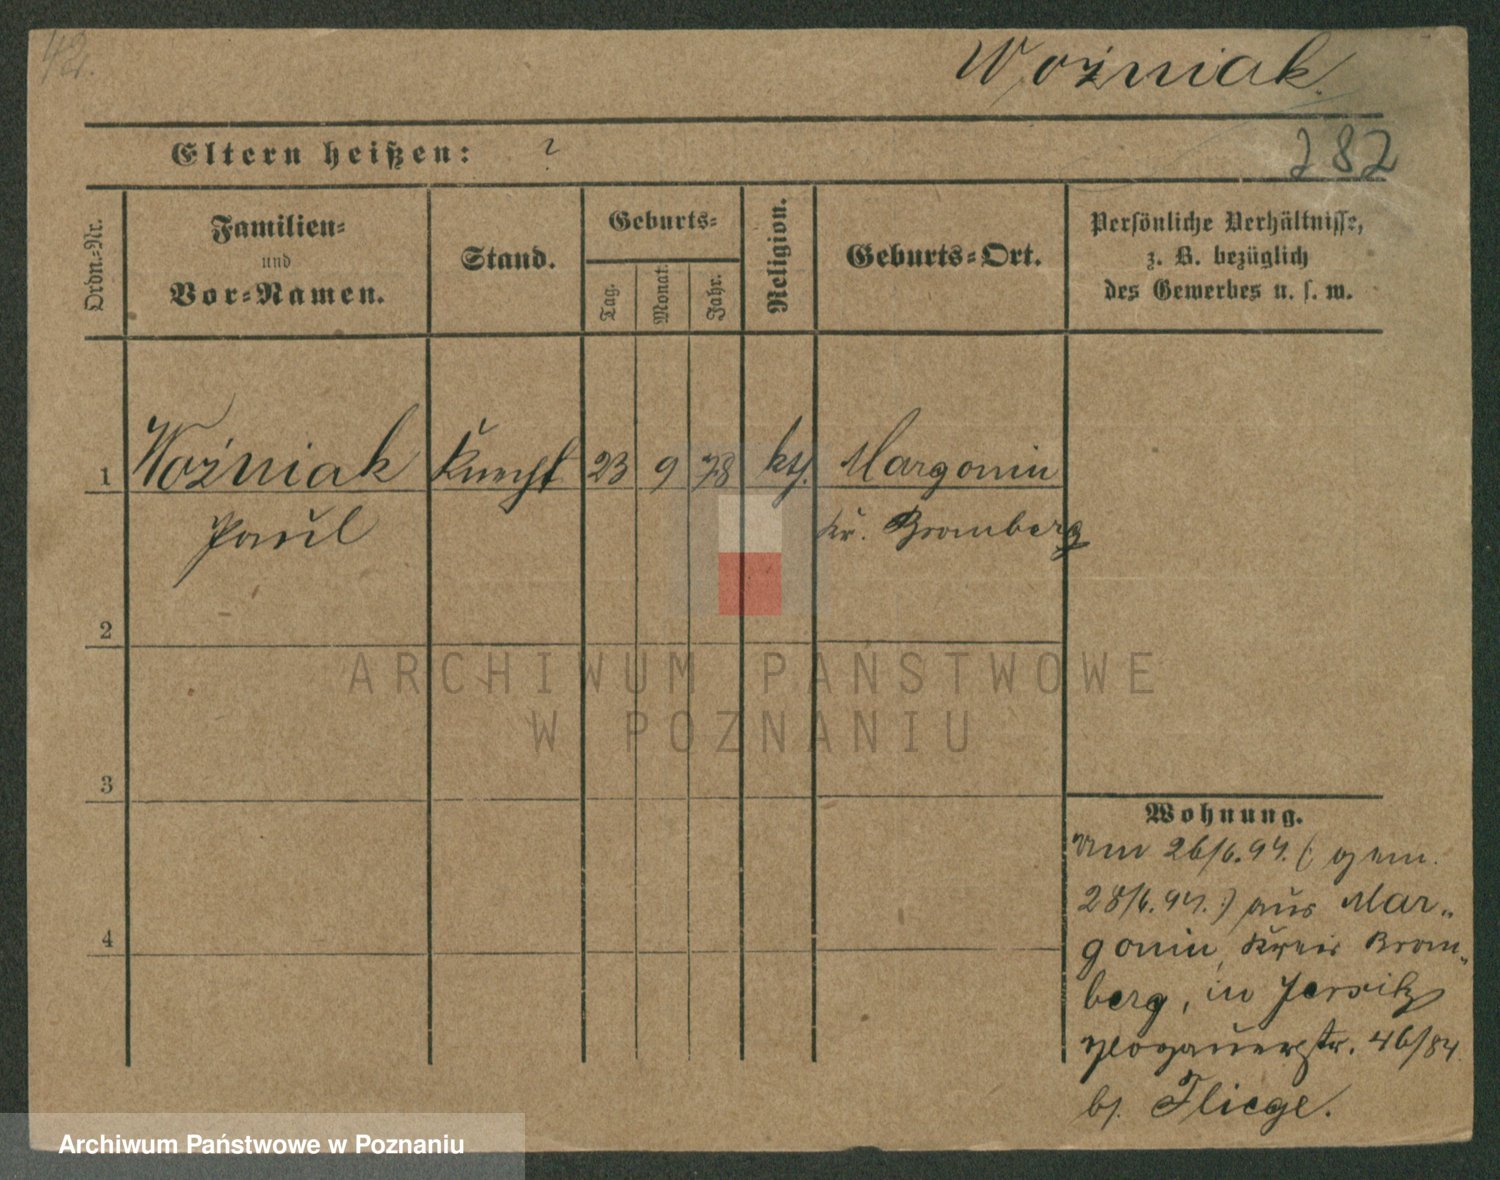 42.
Woźniak.
282
Eltern heißen: ?
Ordn.-Nr.
Familien-
und
Vor-Namen.
Stand.
Geburts-
Tag.
Monat.
Jahr.
Religion.
Geburts-Ort.
Persönliche Verhältnisse,
z. B. bezüglich
des Gewerbes u. s. w.
1 Woźniak Knecht 23 9 78 kth. Margonin
Paul Kr. Bromberg
2
3
4
Wohnung.
Am 26/6.94. (: gem.
28/6.94. :) aus Mar-
gonin, Kreis Brom-
berg, in Jersitz
Glogauerstr. 46/84
bei Fliege.
ARCHIWUM PAŃSTWOWE
W POZNANIU
Archiwum Państwowe w Poznaniu